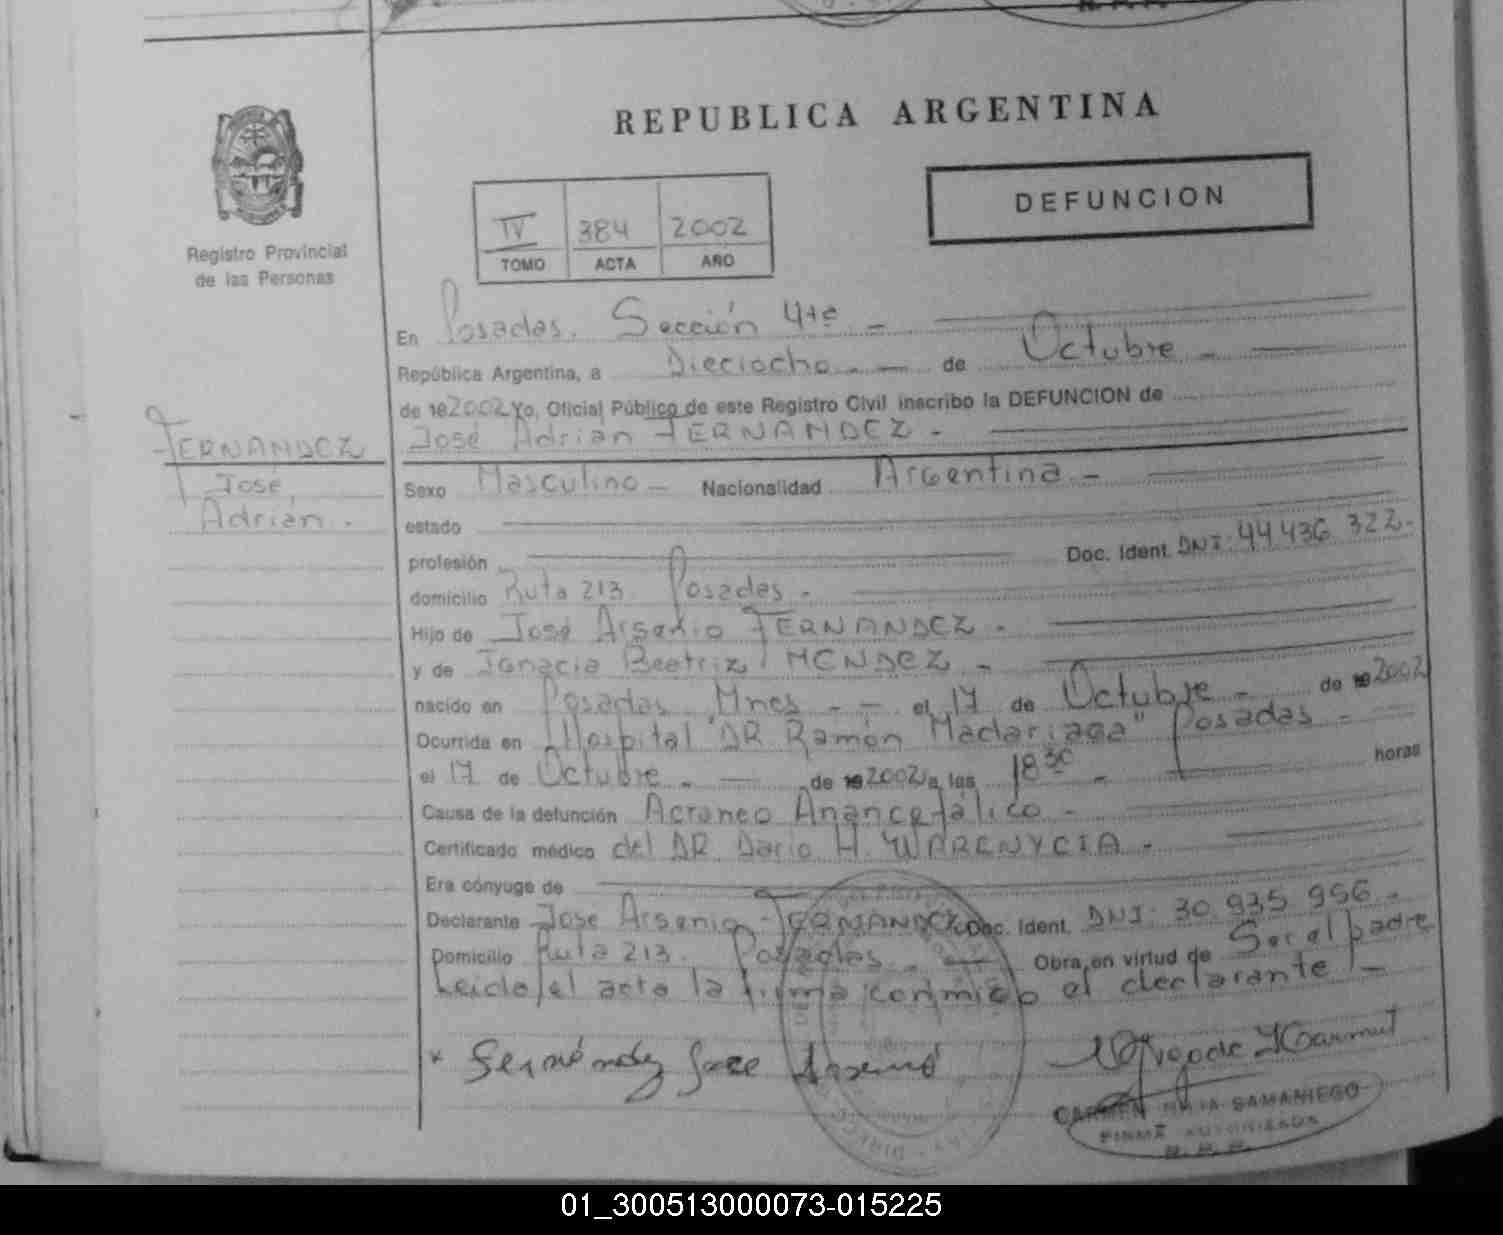 REPUBLICA ARGENTINA
DEFUNCION
IV 384 2002
TOMO ACTA AÑO
Registro Provincial
de las Personas
En Posadas, Sección 4ta -
República Argentina, a Dieciocho - - de Octubre -
de 2002 Yo, Oficial Público de este Registro Civil inscribo la DEFUNCION de
José Adrian FERNANDEZ -
FERNANDEZ
José
Adrian.
Sexo Masculino - Nacionalidad Argentina -
estado
profesión Doc. Ident. DNI: 44 436 322.
domicilio Ruta 213 Posadas -
Hijo de José Arsenio FERNANDEZ -
y de Ignacia Beatriz MENDEZ -
nacido en Posadas Mnes - - el 17 de Octubre - de 2002
Ocurrida en Hospital "DR Ramón Madariaga" Posadas -
el 17 de Octubre - de 2002 a las 18 30 - horas
Causa de la defunción Acraneo Anancefálico -
Certificado médico del DR Dario H. WARENYCIA -
Era cónyuge de
Declarante Jose Arsenio FERNANDEZ Doc. Ident. DNI: 30 935 956 -
Domicilio Ruta 213. Posadas - Obra en virtud de Ser el padre
Leida el acta la firma conmigo el declarante -
CARMEN SAMANIEGO
FIRMA AUTORIZADA
01_300513000073-015225